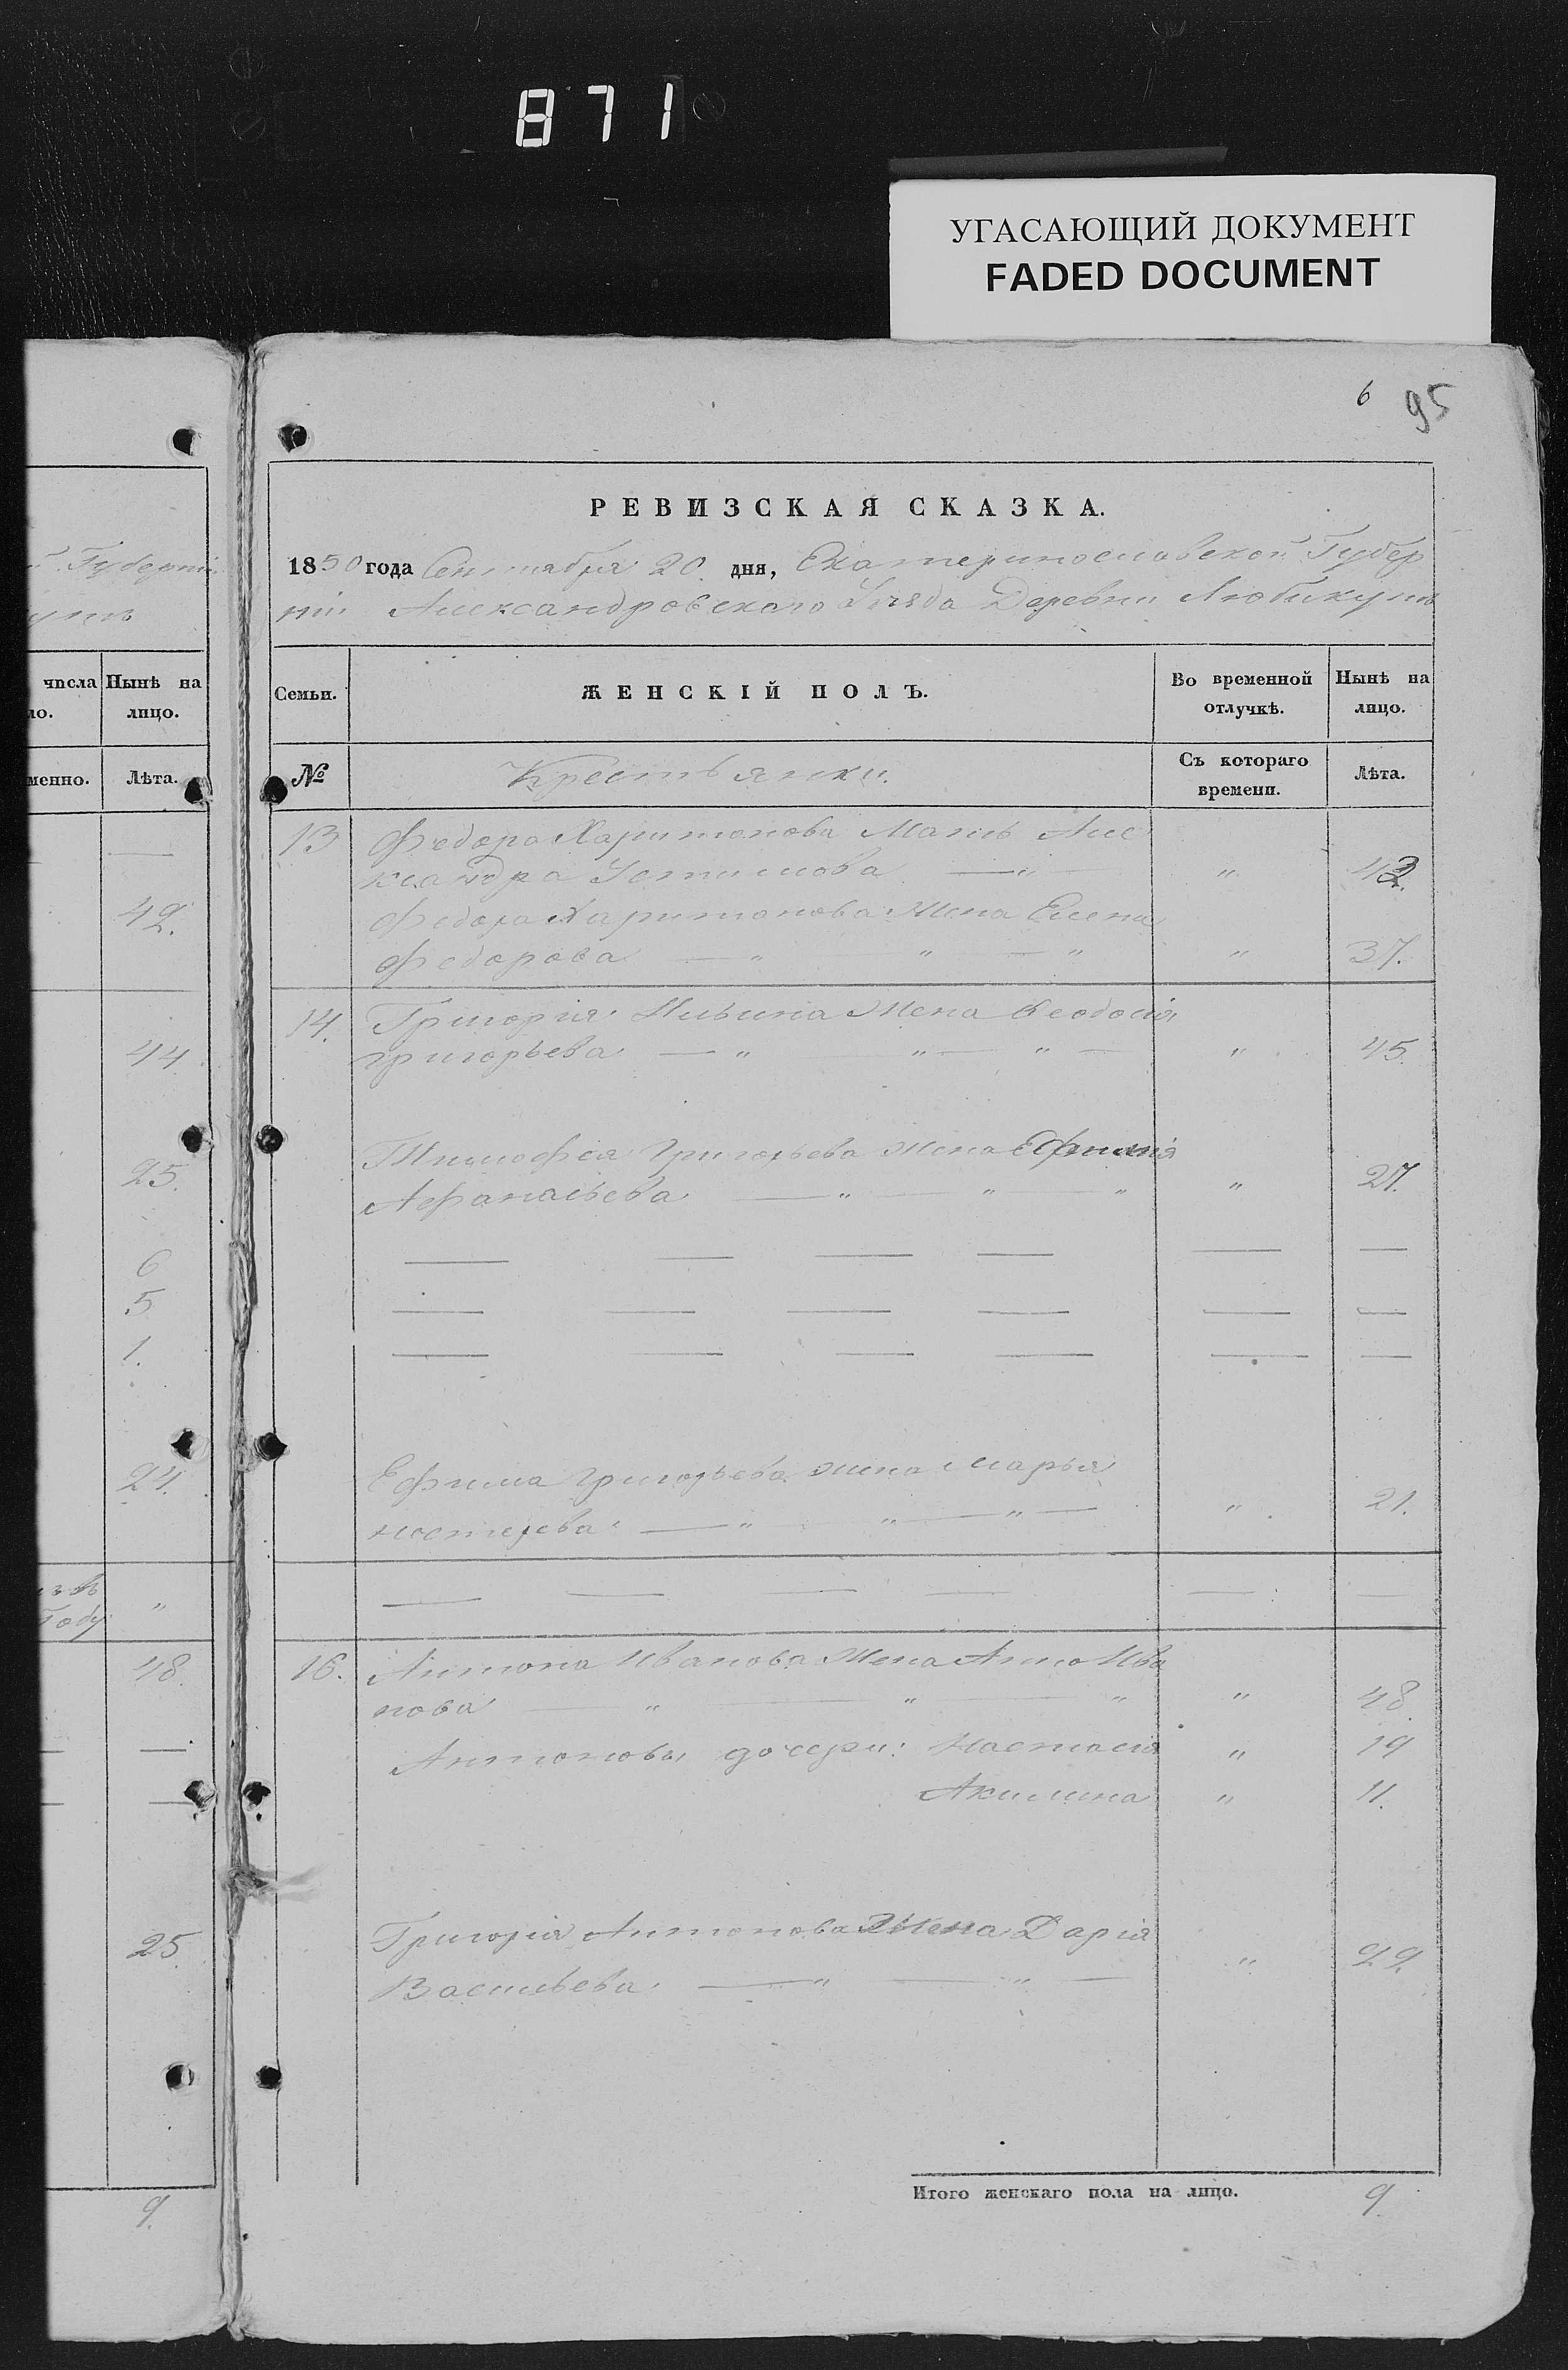 871
УГАСАЮЩИЙ ДОКУМЕНТ
FADED DOCUMENT
6 95
Губерніи
числа Нынѣ на
ло. лицо.
менно. Лѣта.
—
42.
44
25.
6
5
1.
24.
Году "
48.
—
—
25.
9.
РЕВИЗСКАЯ СКАЗКА.
1850 года Сентября 20. дня, Екатеринославской Губер
ніи Александровскаго Уѣзда Деревни Любикутъ
Семьи. ЖЕНСКІЙ ПОЛЪ. Во временной отлучкѣ. Нынѣ на лицо.
№ Крестьянки. Съ котораго времени. Лѣта.
13 Федора Харитонова Мать Алек
ксандра Устимова — " — " 42.
Федора Харитонова Жена Елена
Федорова — " " — " " 37.
14. Григорія Ильина Жена Феодосія
Григорьева — " " — " — " 45.
Тимофея Григорьева жена Ефимія
Афанасьева — " — " — " " 27.
— — — — — —
— — — — — —
— — — — — —
Ефима Григорьева жена Марья
Нестерева — " " — " — " 21.
— — — — — —
16. Антона Иванова Жена Анна Ива
нова — " — " — " " 48.
Антоновы дочери: Настасія " 19
Акилина " 11.
Григорія Антонова Жена Дарія
Васильева — " — " — " 22.
Итого женскаго пола на лицо. 9.